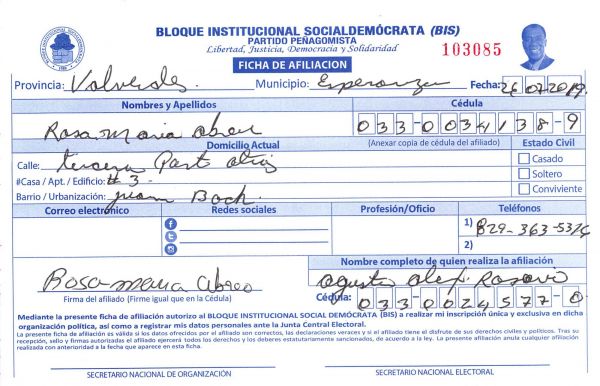 BLOQUE INSTITUCIONAL SOCIALDEMÓCRATA (BIS)
PARTIDO PEÑAGOMISTA
Libertad, Justicia, Democracia y Solidaridad
103085
FICHA DE AFILIACION
Provincia: Valverde Municipio: Esperanza Fecha: 26 07 2019
Nombres y Apellidos Cédula
Rosa maria abreu 033-0034138-9
Domicilio Actual (Anexar copia de cédula del afiliado) Estado Civil
Calle: tercera Part atras Casado
#Casa / Apt. / Edificio: # 3 Soltero
Barrio / Urbanización: juan Boch Conviviente
Correo electrónico Redes sociales Profesión/Oficio Teléfonos
1) 829-363-5376
2)
Nombre completo de quien realiza la afiliación
Rosa maria abreo agusto alex Rosario
Firma del afiliado (Firme igual que en la Cédula) Cédula: 033 0024577-0
Mediante la presente ficha de afiliación autorizo al BLOQUE INSTITUCIONAL SOCIAL DEMÓCRATA (BIS) a realizar mi inscripción única y exclusiva en dicha
organización política, así como a registrar mis datos personales ante la Junta Central Electoral.
La presente ficha de afiliación es válida si los datos ofrecidos por el afiliado son correctos, las declaraciones veraces y si el afiliado tiene el disfrute de sus derechos civiles y políticos. Tras su
recepción, sello y firmas autorizadas el afiliado ejercerá todos los derechos y los deberes estatutariamente sancionados, de acuerdo a la ley. La presente afiliación anula cualquier afiliación
realizada con anterioridad a la fecha que aparece en esta ficha.
SECRETARIO NACIONAL DE ORGANIZACIÓN SECRETARIO NACIONAL ELECTORAL